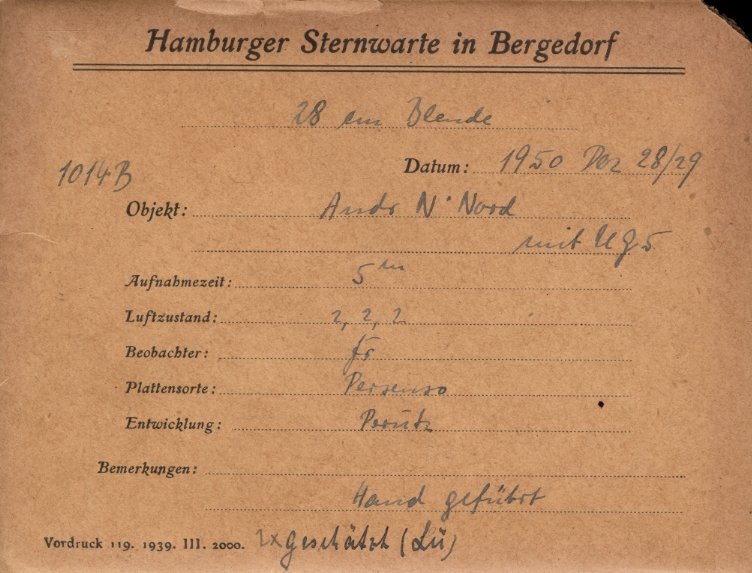 Hamburger Sternwarte in Bergedorf
28 cm Blende
1014B
Datum: 1950 Dez 28/29
Objekt: Andr N. Nord
mit UG5
Aufnahmezeit: 5m
Luftzustand: 2, 2, 2
Beobachter: fr
Plattensorte: Persenso
Entwicklung: Perutz
Bemerkungen:
Hand geführt
Vordruck 119. 1939. III. 2000. 2x geschätzt (Lü)